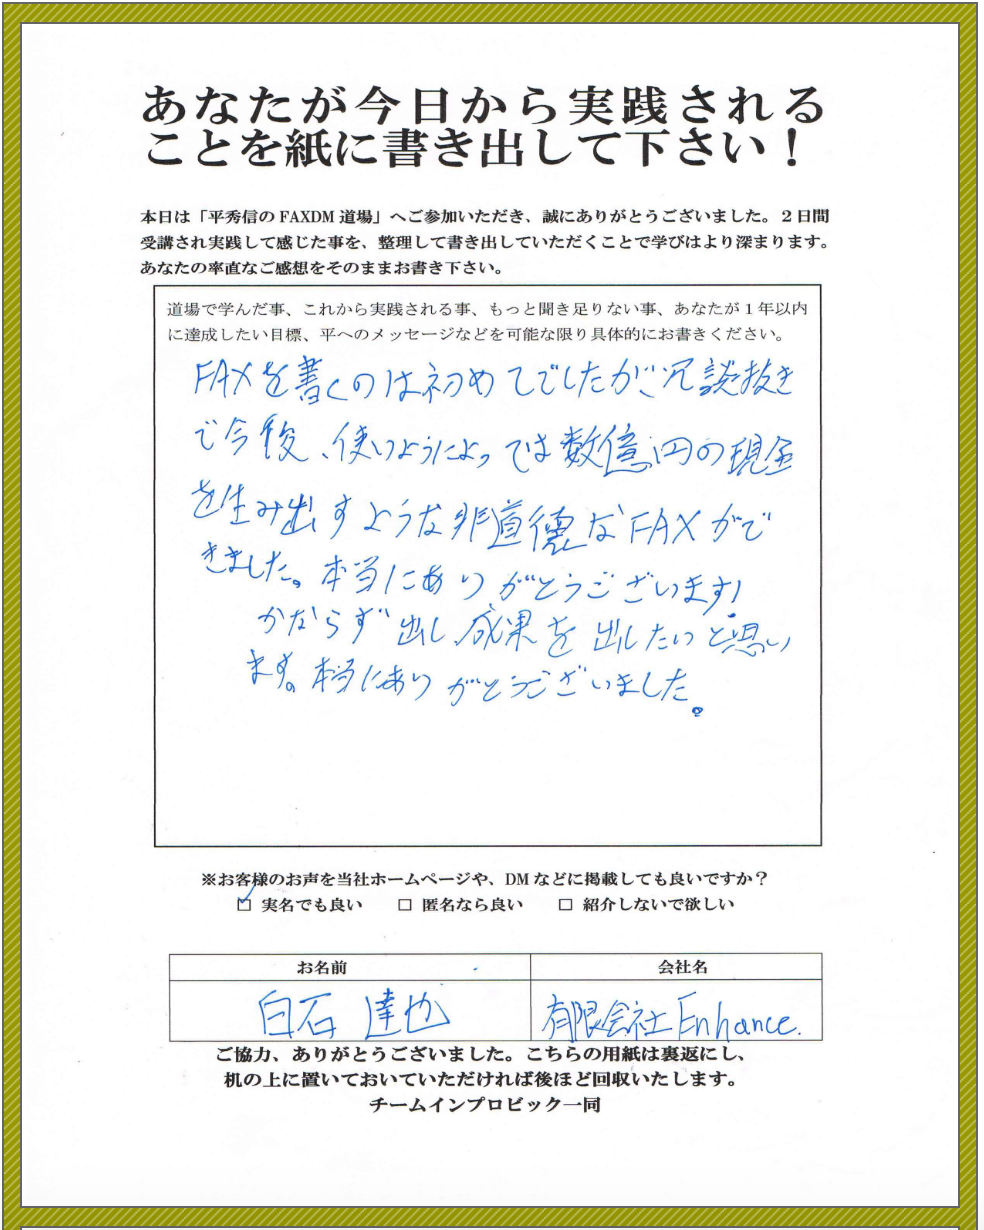 あなたが今日から実践される
ことを紙に書き出して下さい！
本日は「平秀信の FAXDM 道場」へご参加いただき、誠にありがとうございました。２日間
受講され実践して感じた事を、整理して書き出していただくことで学びはより深まります。
あなたの率直なご感想をそのままお書き下さい。
道場で学んだ事、これから実践される事、もっと聞き足りない事、あなたが１年以内
に達成したい目標、平へのメッセージなどを可能な限り具体的にお書きください。
FAXを書くのは初めてでしたが冗談抜き
で今後、使いようによっては数億円の現金
を生み出すような非道徳なFAXがで
きました。本当にありがとうございます!
かならず出し成果を出したいと思い
ます。本当にありがとうございました。
※お客様のお声を当社ホームページや、DM などに掲載しても良いですか？
☑ 実名でも良い □ 匿名なら良い □ 紹介しないで欲しい
お名前 会社名
白石 達也 有限会社Enhance.
ご協力、ありがとうございました。こちらの用紙は裏返にし、
机の上に置いておいていただければ後ほど回収いたします。
チームインプロビック一同